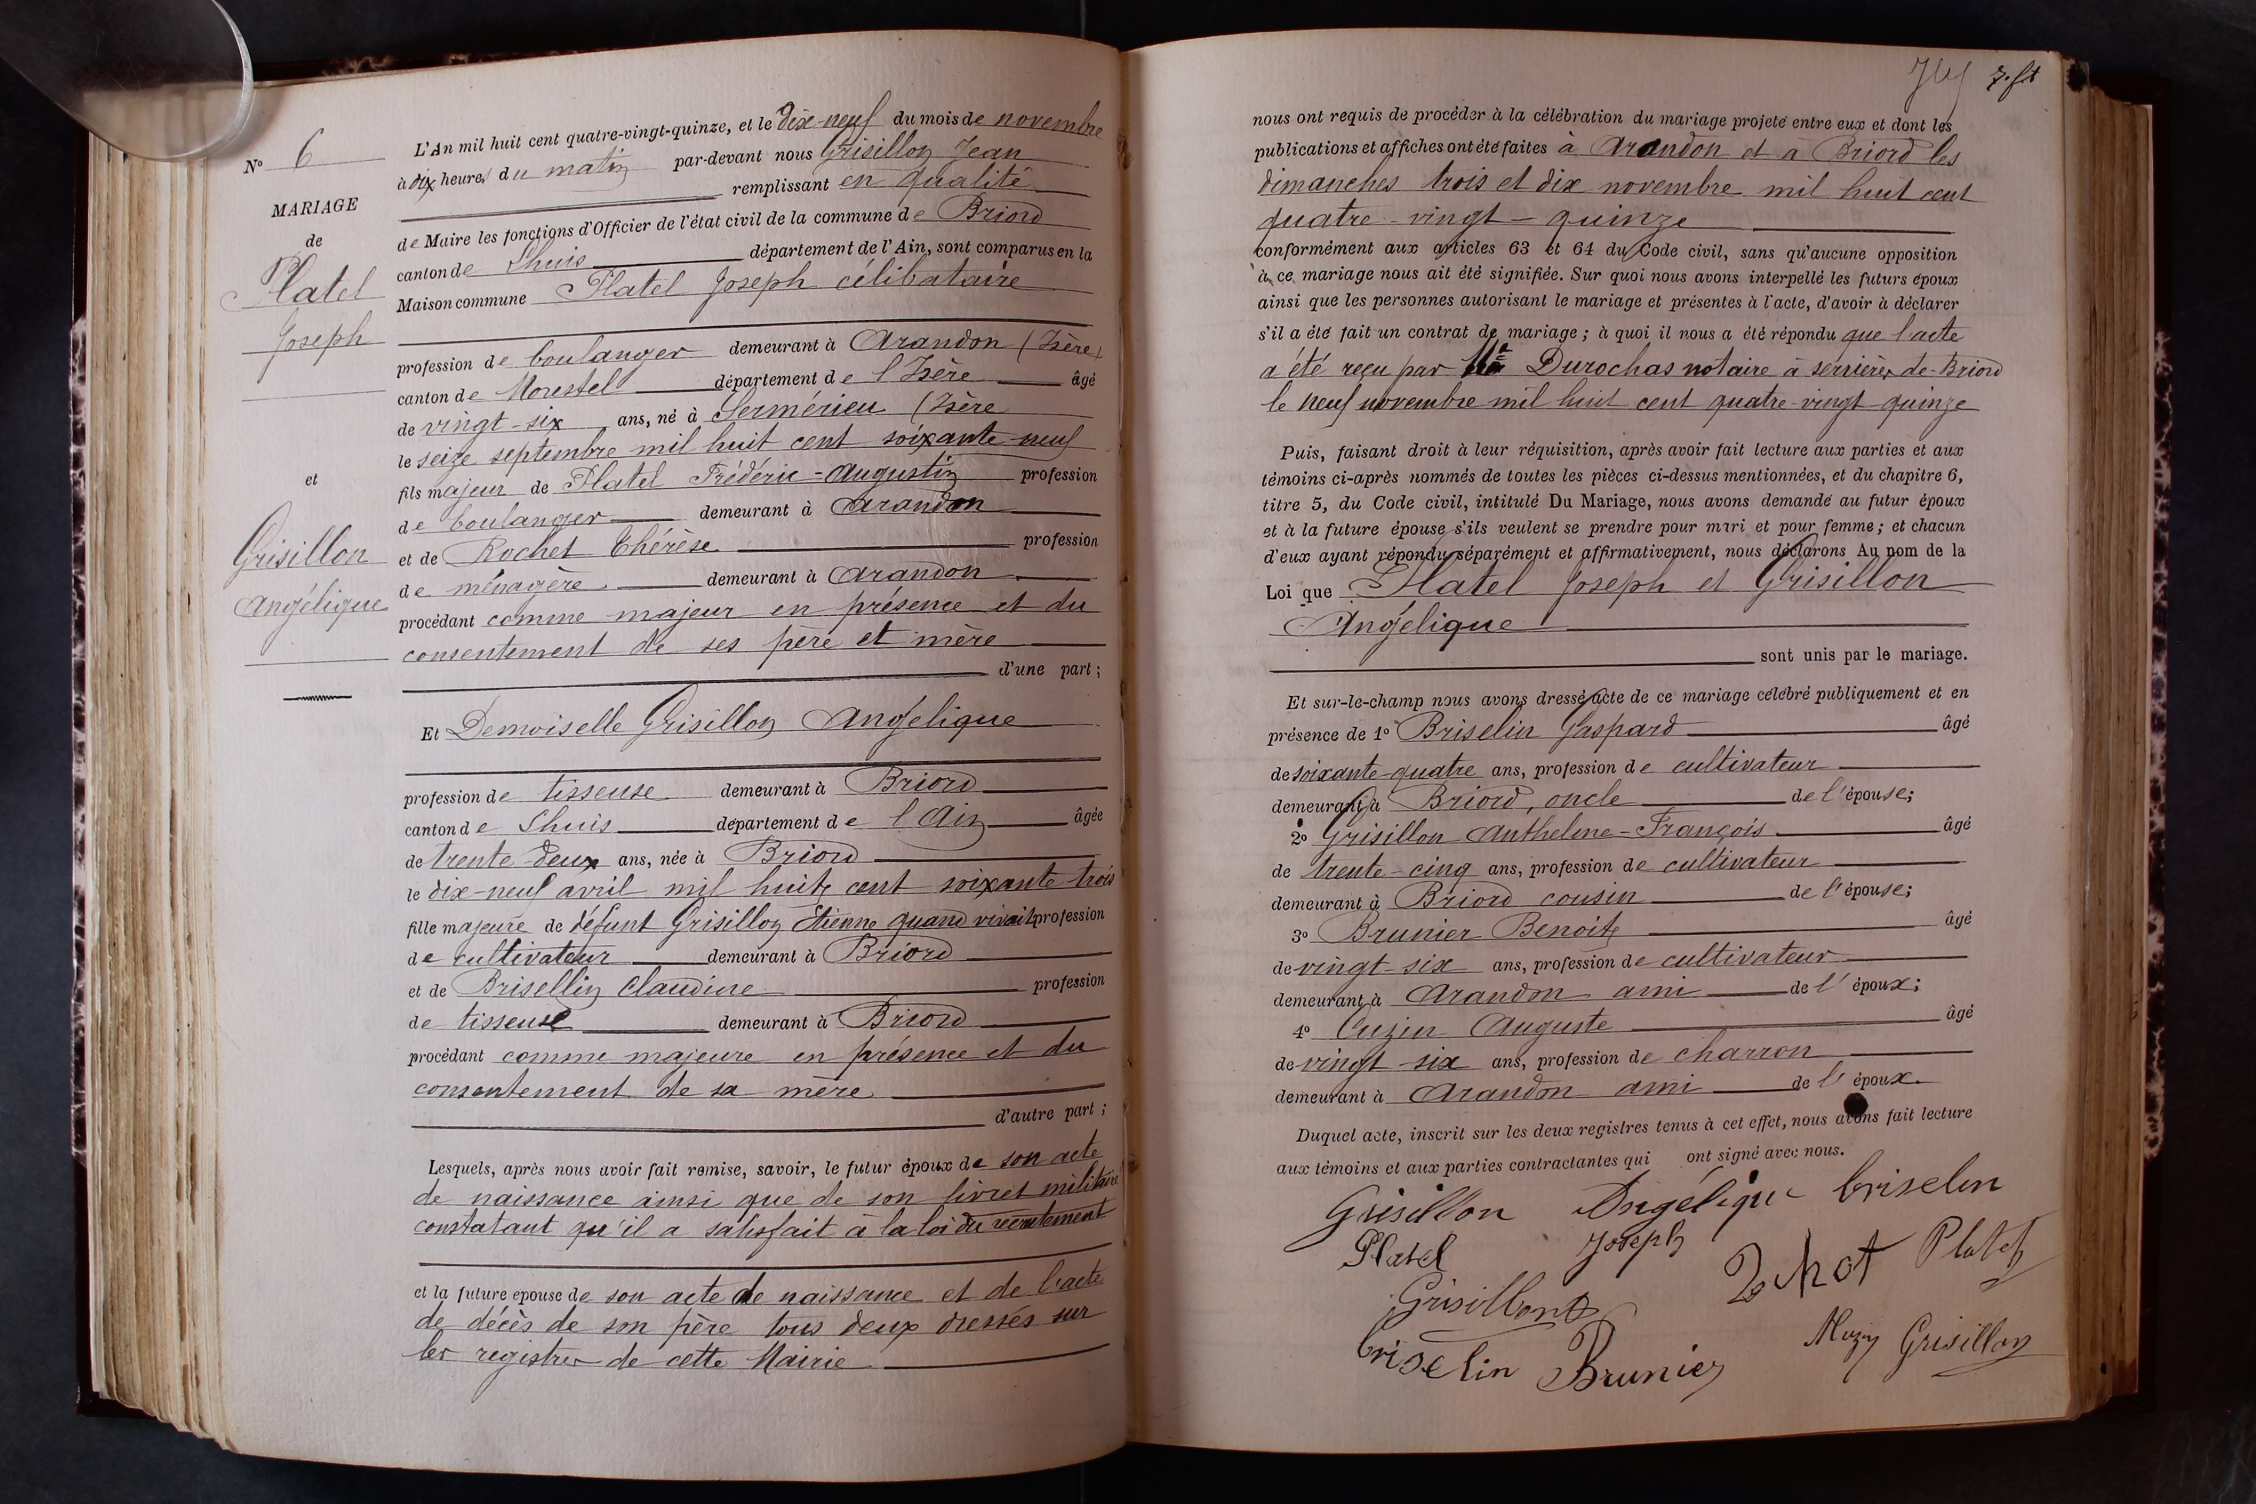 N° 6
MARIAGE
de
Platel
Joseph
et
Grisillon
Angélique
L'An mil huit cent quatre-vingt-quinze, et le dix-neuf du mois de novembre
à dix heures du matin par-devant nous Grisillon Jean
remplissant en qualité
de Maire les fonctions d'Officier de l'état civil de la commune de Briord
canton de Lhuis département de l'Ain, sont comparus en la
Maison commune Platel Joseph célibataire
profession de boulanger demeurant à Arandon (Isère)
canton de Morestel département de l'Isère âgé
de vingt-six ans, né à Sermérieu (Isère
le seize septembre mil huit cent soixante neuf
fils majeur de Platel Frédéric=Augustin profession
de boulanger demeurant à Arandon
et de Rochet Thérèse profession
de ménagère demeurant à Arandon
procédant comme majeur en présence et du
consentement de ses père et mère
d'une part;
Et Demoiselle Grisillon Angélique
profession de tisseuse demeurant à Briord
canton de Lhuis département de l'Ain âgée
de trente-deux ans, née à Briord
le dix-neuf avril mil huit cent soixante trois
fille majeure de défunt Grisillon Etienne quand vivait profession
de cultivateur demeurant à Briord
et de Brisellin Claudine profession
de tisseuse demeurant à Briord
procédant comme majeure en présence et du
consentement de sa mère
d'autre part;
Lesquels, après nous avoir fait remise, savoir, le futur époux de son acte
de naissance ainsi que de son livret militaire
constatant qu'il a satisfait à la loi du recrutement
et la future epouse de son acte de naissance et de l'acte
de décès de son père tous deux dressés sur
les registres de cette Mairie
nous ont requis de procéder à la célébration du mariage projeté entre eux et dont les
publications et affiches ont été faites à Arandon et a Briord les
dimanches trois et dix novembre mil huit cent
quatre-vingt-quinze
conformément aux articles 63 et 64 du Code civil, sans qu'aucune opposition
à ce mariage nous ait été signifiée. Sur quoi nous avons interpellé les futurs époux
ainsi que les personnes autorisant le mariage et présentes à l'acte, d'avoir à déclarer
s'il a été fait un contrat de mariage; à quoi il nous a été répondu que l'acte
a été reçu par Me Durochas notaire à serrières-de-Briord
le neuf novembre mil huit cent quatre-vingt-quinze
Puis, faisant droit à leur réquisition, après avoir fait lecture aux parties et aux
témoins ci-après nommés de toutes les pièces ci-dessus mentionnées, et du chapitre 6,
titre 5, du Code civil, intitulé Du Mariage, nous avons demandé au futur époux
et à la future épouse s'ils veulent se prendre pour mari et pour femme; et chacun
d'eux ayant répondu séparément et affirmativement, nous déclarons Au nom de la
Loi que Platel Joseph et Grisillon
Angélique
sont unis par le mariage.
Et sur-le-champ nous avons dressé acte de ce mariage célébré publiquement et en
présence de 1° Briselin Gaspard âgé
de soixante-quatre ans, profession de cultivateur
demeurant à Briord, oncle de l'épouse;
2° Grisillon Anthelme-François âgé
de trente-cinq ans, profession de cultivateur
demeurant à Briord cousin de l'épouse;
3° Brunier Benoit âgé
de vingt-six ans, profession de cultivateur
demeurant à Arandon ami de l'époux;
4° Cuzin Auguste âgé
de vingt-six ans, profession de charron
demeurant à Arandon ami de l'époux.
Duquel acte, inscrit sur les deux registres tenus à cet effet, nous avons fait lecture
aux témoins et aux parties contractantes qui ont signé avec nous.
Grisillon Angélique briselin
Platel Joseph Platel
Grisillon
briselin Brunier Grisillon